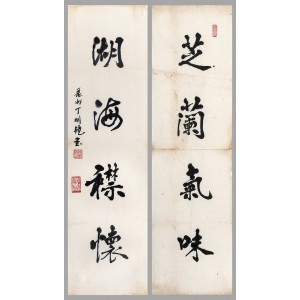 芝蘭氣味
湖海襟懷